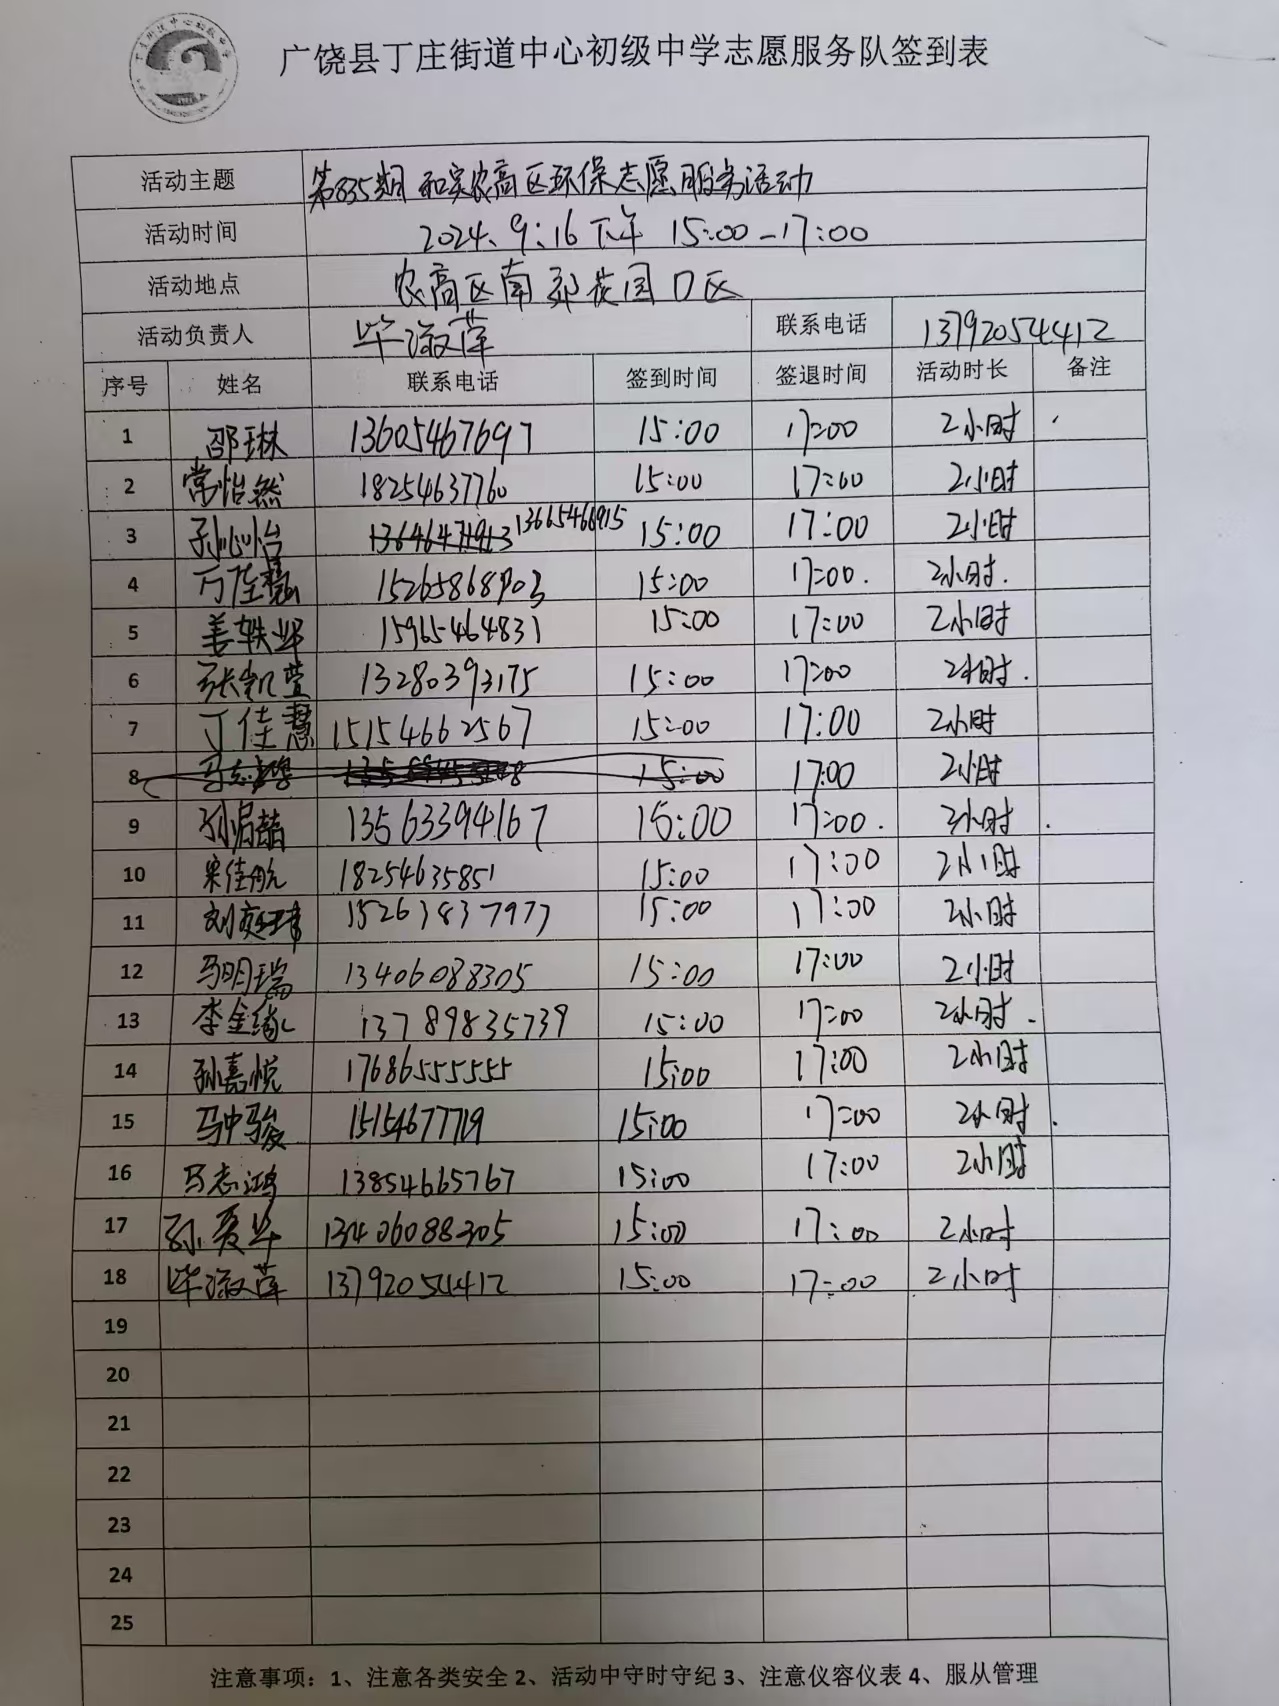 广饶县丁庄街道中心初级中学志愿服务队签到表
活动主题 第835期 和实农高区环保志愿服务活动
活动时间 2024、9:16 下午 15:00-17:00
活动地点 农高区南郊花园D区
活动负责人 毕淑萍 联系电话 13792054412
序号 姓名 联系电话 签到时间 签退时间 活动时长 备注
1 邵琳 13605467697 15:00 17:00 2小时
2 常怡然 18254637760 15:00 17:00 2小时
3 孙心怡 13665466915 15:00 17:00 2小时
4 万佳慧 15265868903 15:00 17:00. 2小时.
5 姜轶 15965464831 15:00 17:00 2小时
6 张凯萱 13280393175 15:00 17:00 2小时.
7 丁佳慧 15154662567 15:00 17:00 2小时
8 马志鸿 15:00 17:00 2小时
9 孙 13563394167 15:00 17:00. 2小时.
10 宋佳航 18254635851 15:00 17:00 2小时
11 刘奕玮 15263837977 15:00 17:00 2小时
12 马明瑞 13406088305 15:00 17:00 2小时
13 李金缘 13789835739 15:00 17:00 2小时.
14 孙嘉悦 17686555555 15:00 17:00 2小时
15 马中骏 15154677719 15:00 17:00 2小时.
16 马志鸿 13854665767 15:00 17:00 2小时
17 孙爱华 13406088305 15:00 17:00 2小时
18 毕淑萍 13792054412 15:00 17:00 2小时
19
20
21
22
23
24
25
注意事项：1、注意各类安全 2、活动中守时守纪 3、注意仪容仪表 4、服从管理